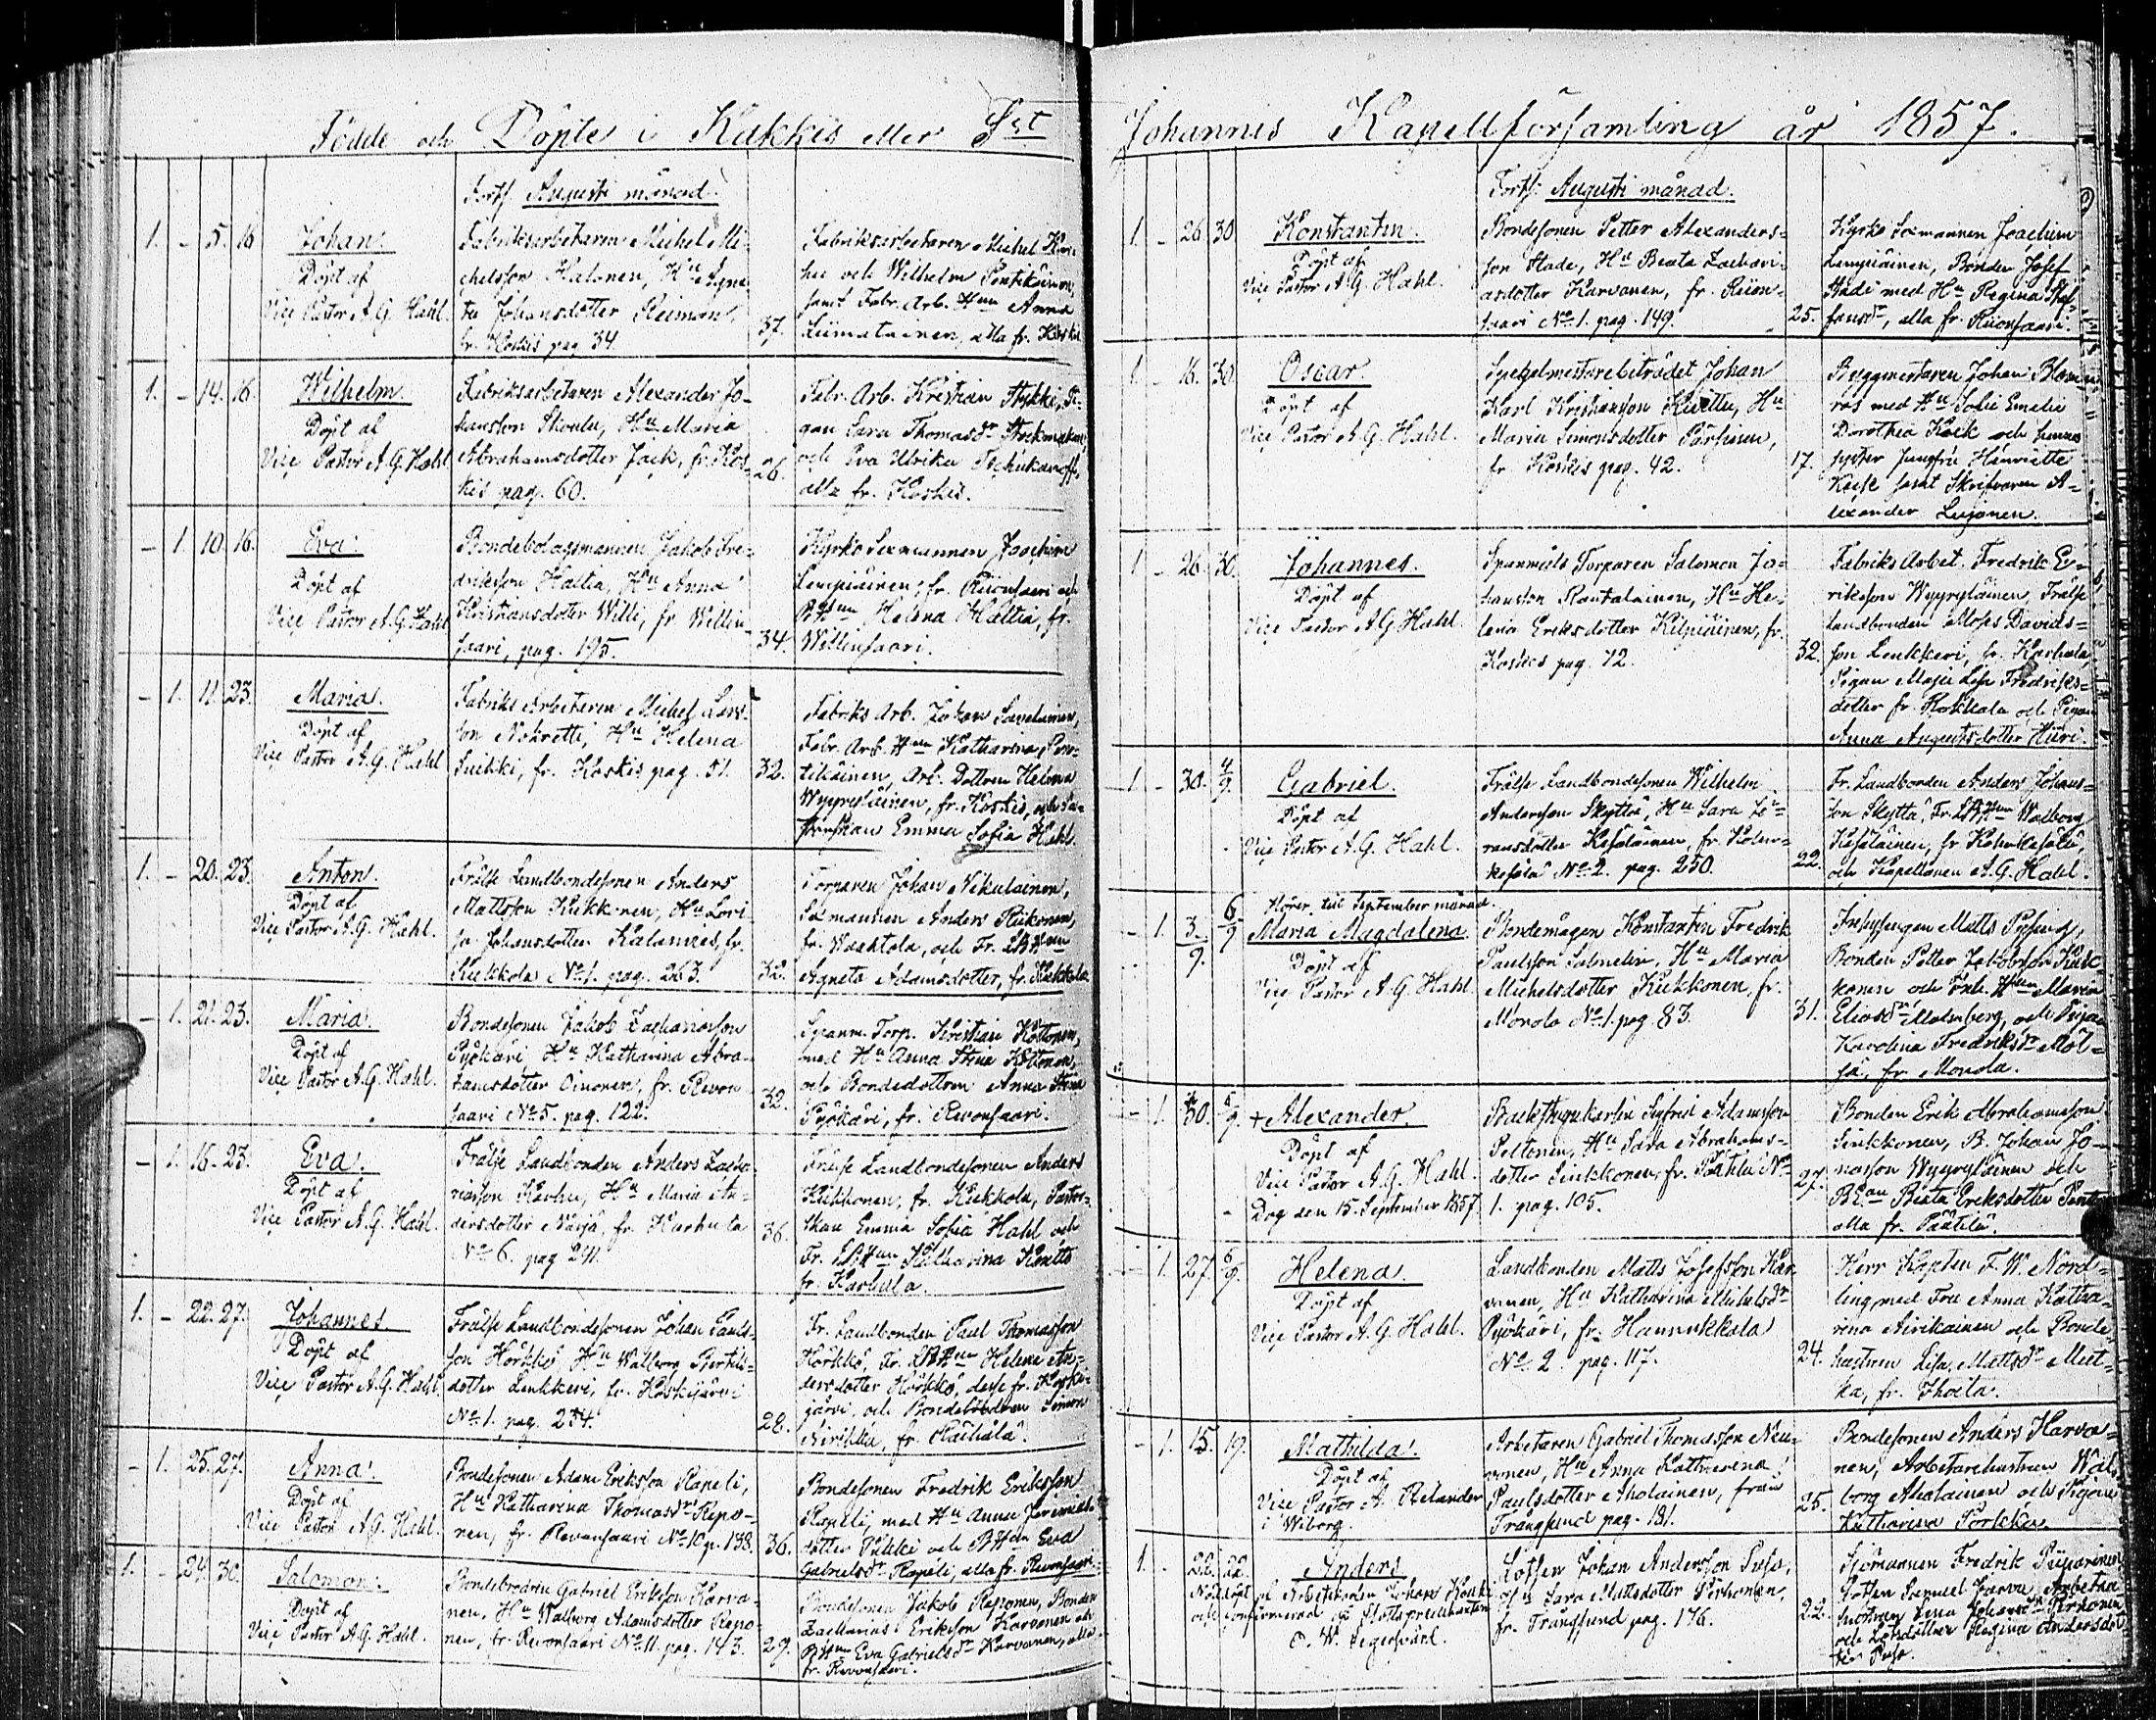 Födde och Döpte i Kakkis eller S:t
Forts. Augusti månad.
1. - 5. 16 Johan.
Döpt af
Vice Pastor A. G. Hahl.
Fabriksarbetaren Michel Mi-
chelsson Halonen, Hu Agne-
ta Johansdotter Reiman,
fr. Koskis pag 34.
37.
Fabriksarbetaren Michel
och Wilhelm Pentikäinen,
samt Fabr. Arb. Hun Anna
Liimatainen, alla fr. Koskis.
1. - 14. 16. Wilhelm.
Döpt af
Vice Pastor A. G. Hahl
Fabriksarbetaren Alexander Jo-
hansson Hu Maria
Abrahamsdotter Jack, fr. Kos-
kis pag. 60.
26.
Fabr. Arb. Kristian Stykki, Pi-
gan Sara Thomasdr
och Eva Ulrika Tschukanoff,
alla fr. Koskis.
- 1. 10. 16. Eva.
Döpt af
Vice Pastor A. G. Hahl
Bondebolagsmannen Jakob Fre-
driksson Hattia, Hu Anna
Kristiansdotter Willi, fr. Willin-
saari, pag. 195.
34.
Kyrko Sexmannen Joachim
Lempiäinen, fr. Riionsaari och
BHun Helena Hattia, fr.
Willinsaari.
- 1. 11. 23. Maria.
Döpt af
Vice Pastor A. G. Hahl
Fabriks Arbetaren Michel Lars-
son Nokretti, Hu Helena
Suikki, fr. Koskis pag. 51.
32.
Fabriks Arb. Johan Savolainen,
Fabr. Arb. Hun Katharina Pen-
tikäinen, Arb. Dottren Helena
Wyyryläinen, fr. Koskis, och Pa-
storskan Emma Sofia Hahl.
1. - 20. 23. Anton.
Döpt af
Vice Pastor A. G. Hahl.
Frälse Landbondesonen Anders
Mattsson Kukkonen, Hu Lovi-
sa Johansdotter Kalamies, fr.
Kukkola No 1. pag. 263.
32.
Torparen Johan Nikulainen,
Sexmannen Anders Riikonen,
fr. Waahtola, och Fr. LBHun
Agneta Adamsdotter, fr. Kukkola
- 1. 21. 23. Maria.
Döpt af
Vice Pastor A. G. Hahl.
Bondesonen Jakob Zachariasson
Pyökäri, Hu Katharina Abra-
hamsdotter Oinonen, fr. Revon
saari No 5. pag. 122.
32.
Spanm. Torp. Kristian Kottonen,
med Hu Anna Stina Kottonen,
och Bondedottren Anna Stina
Pyökäri, fr. Revonsaari.
- 1. 16. 23. Eva.
Döpt af
Vice Pastor A. G. Hahl.
Frälse Landbonden Anders Zacha-
riasson Karhu, Hu Maria An-
dersdotter Närjä, fr. Karhula
No 6. pag 241.
36.
Frälse Landbondesonen Anders
Kukkonen, fr. Kukkola, Pastor-
skan Emma Sofia Hahl och
Fr. LBHun Katharina
fr. Karhula.
1. - 22. 27. Johannes.
Döpt af
Vice Pastor A. G. Hahl
Frälse Landbondesonen Johan Pauls-
son Hörkkö Hu Walborg Bertils-
dotter Leukkeri, fr. Koskijärvi
No 1. pag. 254.
28.
Fr. Landbonden Paul Thomasson
Hörkkö, Fr. LBHun Helena An-
dersdotter Hörkkö, desse fr. Koski-
järvi, och Bondebrodren Simon
fr. Kaihala.
- 1. 25. 27. Anna.
Döpt af
Vice Pastor A. G. Hahl.
Bondesonen Adam Eriksson Rapeli,
Hu Katharina Thomasdr Repo-
nen, fr. Revonsaari No 10 p. 138.
36.
Bondesonen Fredrik Eriksson
Rapeli, med Hu Anna Jeremiæ
dotter Pukki och BHun Eva
Gabrielsdr Rapeli, alla fr. Revonsaari.
1. - 24. 30. Salomon.
Döpt af
Vice Pastor A. G. Hahl.
Bondebrodren Gabriel Eriksson Karvo-
nen, Hu Walborg Adamsdotter Repo-
nen, fr. Revonsaari No 11. pag. 143.
29.
Bondesonen Jakob Reponen, Bonden
Zacharias Eriksson Karvonen och
BHun Eva Gabrielsdr Karvonen, alla
fr. Revonsaari.
Johannis Kapellförsamling år 1857.
Forts. Augusti månad.
1. - 26. 30. Konstantin.
Döpt af
Vice Pastor A. G. Hahl.
Bondesonen Petter Alexanders-
son Stade, Hu Beata Zachari-
asdotter Karvonen, fr. Riion-
saari No 1. pag. 149.
25.
Kyrko Sexmannen Joachim
Lempiäinen, Bonden Josef
Stade med Hu Regina
alla fr. Riionsaari.
1. - 16. 30. Oscar.
Döpt af
Vice Pastor A. G. Hahl.
Johan
Karl Kristiansson Hu
Maria Simonsdotter Pärsinen,
fr. Koskis pag. 42.
17.
Byggmästaren Johan
med Hu Sofie Emelie
Dorothea Kock och hennes
syster Jungfru Henriette
samt Skrifvaren A-
lexander
1 - 26. 30. Johannes.
Döpt af
Vice Pastor A. G. Hahl.
Spanmåls Torparen Salomon Jo-
hansson Rautalainen, Hu He-
lena Eriksdotter Kilpiäinen, fr.
Koskis pag. 72.
32.
Fabriks Arbet. Fredrik E-
riksson Wyyryläinen, Frälse
Landbonden Moses Davids-
son Leukkeri, fr. Karhula
Pigan Maja Lisa Fredriks-
dotter fr. Kokkola och Pigan
Anna Augustsdotter Hiiri.
1 - 30. 4/9. Gabriel.
Döpt af
Vice Pastor A. G. Hahl.
Frälse Landbondesonen Wilhelm
Andersson Skyttä, Hu Sara Jö-
ransdotter Kesäläinen, fr. Koln-
kesälä No 2. pag. 250.
22.
Fr. Landbonden Anders Johans-
son Skyttä, Fr. LBHun Walborg
Kesäläinen, fr.
och Kapellanen A. G. Hahl.
Hörer till September månad.
- 1. 3/9. 6/9 Maria Magdalena.
Döpt af
Vice Pastor A. G. Hahl.
Bondemågen Konstantin Fredrik
Paulsson Salmelin, Hu Maria
Michelsdotter Kukkonen, fr.
Monola No 1. pag. 83.
31.
Inhysingen Matts
Bonden Petter Jakobsson Kuk-
konen och Enk. Hun Maria
Eliasdr Malmberg, och Pigan
Karolina Fredriksdr Möl-
sä, fr. Monola.
- 1. 30. 6/9. + Alexander.
Döpt af
Vice Pastor A. G. Hahl.
Dog den 15. September 1857.
Backstugukarlen Sigfrid Adamsson
Peltonen, Hu Sara Abrahams-
dotter Sinkkonen, fr. Päätilä No
1. pag. 105.
27.
Bonden Erik Abrahamsson
Sinkkonen, B. Johan Jo-
nasson Wyyryläinen och
BEan Beata Eriksdotter
alla fr. Päätilä.
- 1. 27. 6/9. Helena.
Döpt af
Vice Pastor A. G. Hahl.
Landbonden Matts Josefsson Kar-
vonen, Hu Katharina Michelsdr
Pyökäri, fr. Hannukkala
No 2. pag. 117.
24.
Herr Kapten F. W. Nord-
ling med Fru Anna Katha-
rina Airikainen och Bonde-
hustrun Lisa Mattsdr Mut-
ka, fr. Ihaila.
- 1. 15. 19. Mathilda.
Döpt af
Vice Pastor A. Relander
i Wiborg.
Arbetaren Gabriel Thomasson Neu-
vonen, Hu Anna Katharina
Paulsdotter Aholainen, från
Trångsund pag. 181.
25.
Bondesonen Anders Karvo-
nen, Arbetarehustrun Wal-
borg Aholainen och Pigan
Katharina Porkka.
1. - 22. 22. Anders.
Nöddöpt af Arbetskarlen Johan
och confirmerad af Slottspredikanten
O. W. Segersvärd.
Lotsen Johan Andersson Puso,
och Sara Mattsdotter Pirhonen,
fr. Trångsund pag. 176.
22.
Sjömannen Fredrik Piiparinen
Lotsen Samuel Arbetare
hustrun Lena Johansdr Pirhonen
och Lotsdottren Regina Andersdot-
ter Puso.